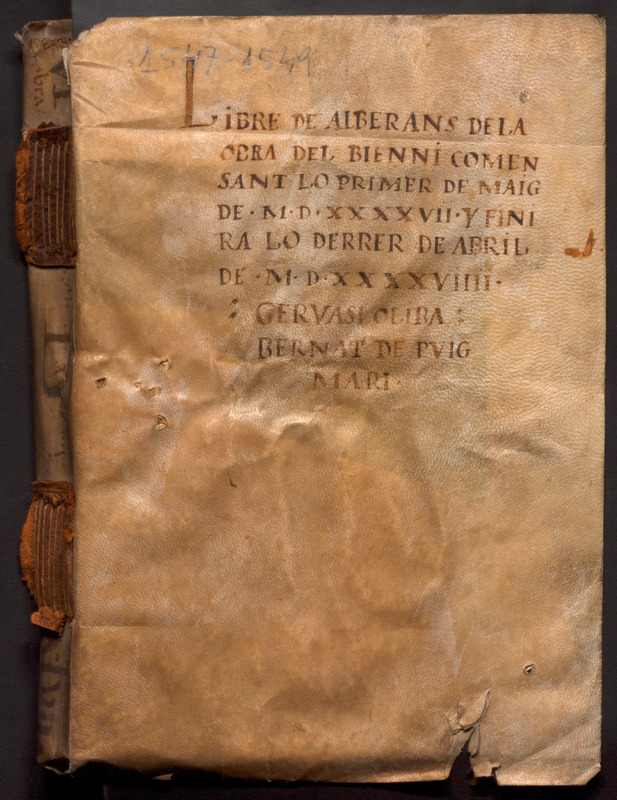 1547-1549
LIBRE DE ALBERANS DE LA
OBRA DEL BIENNI COMEN
SANT LO PRIMER DE MAIG
DE · M · D · XXXXVII · Y FINI
RA LO DERRER DE ABRIL
DE · M · D · XXXXVIIII ·
: GERVASI OLIBA :
BERNAT DE PVIG
MARI ·